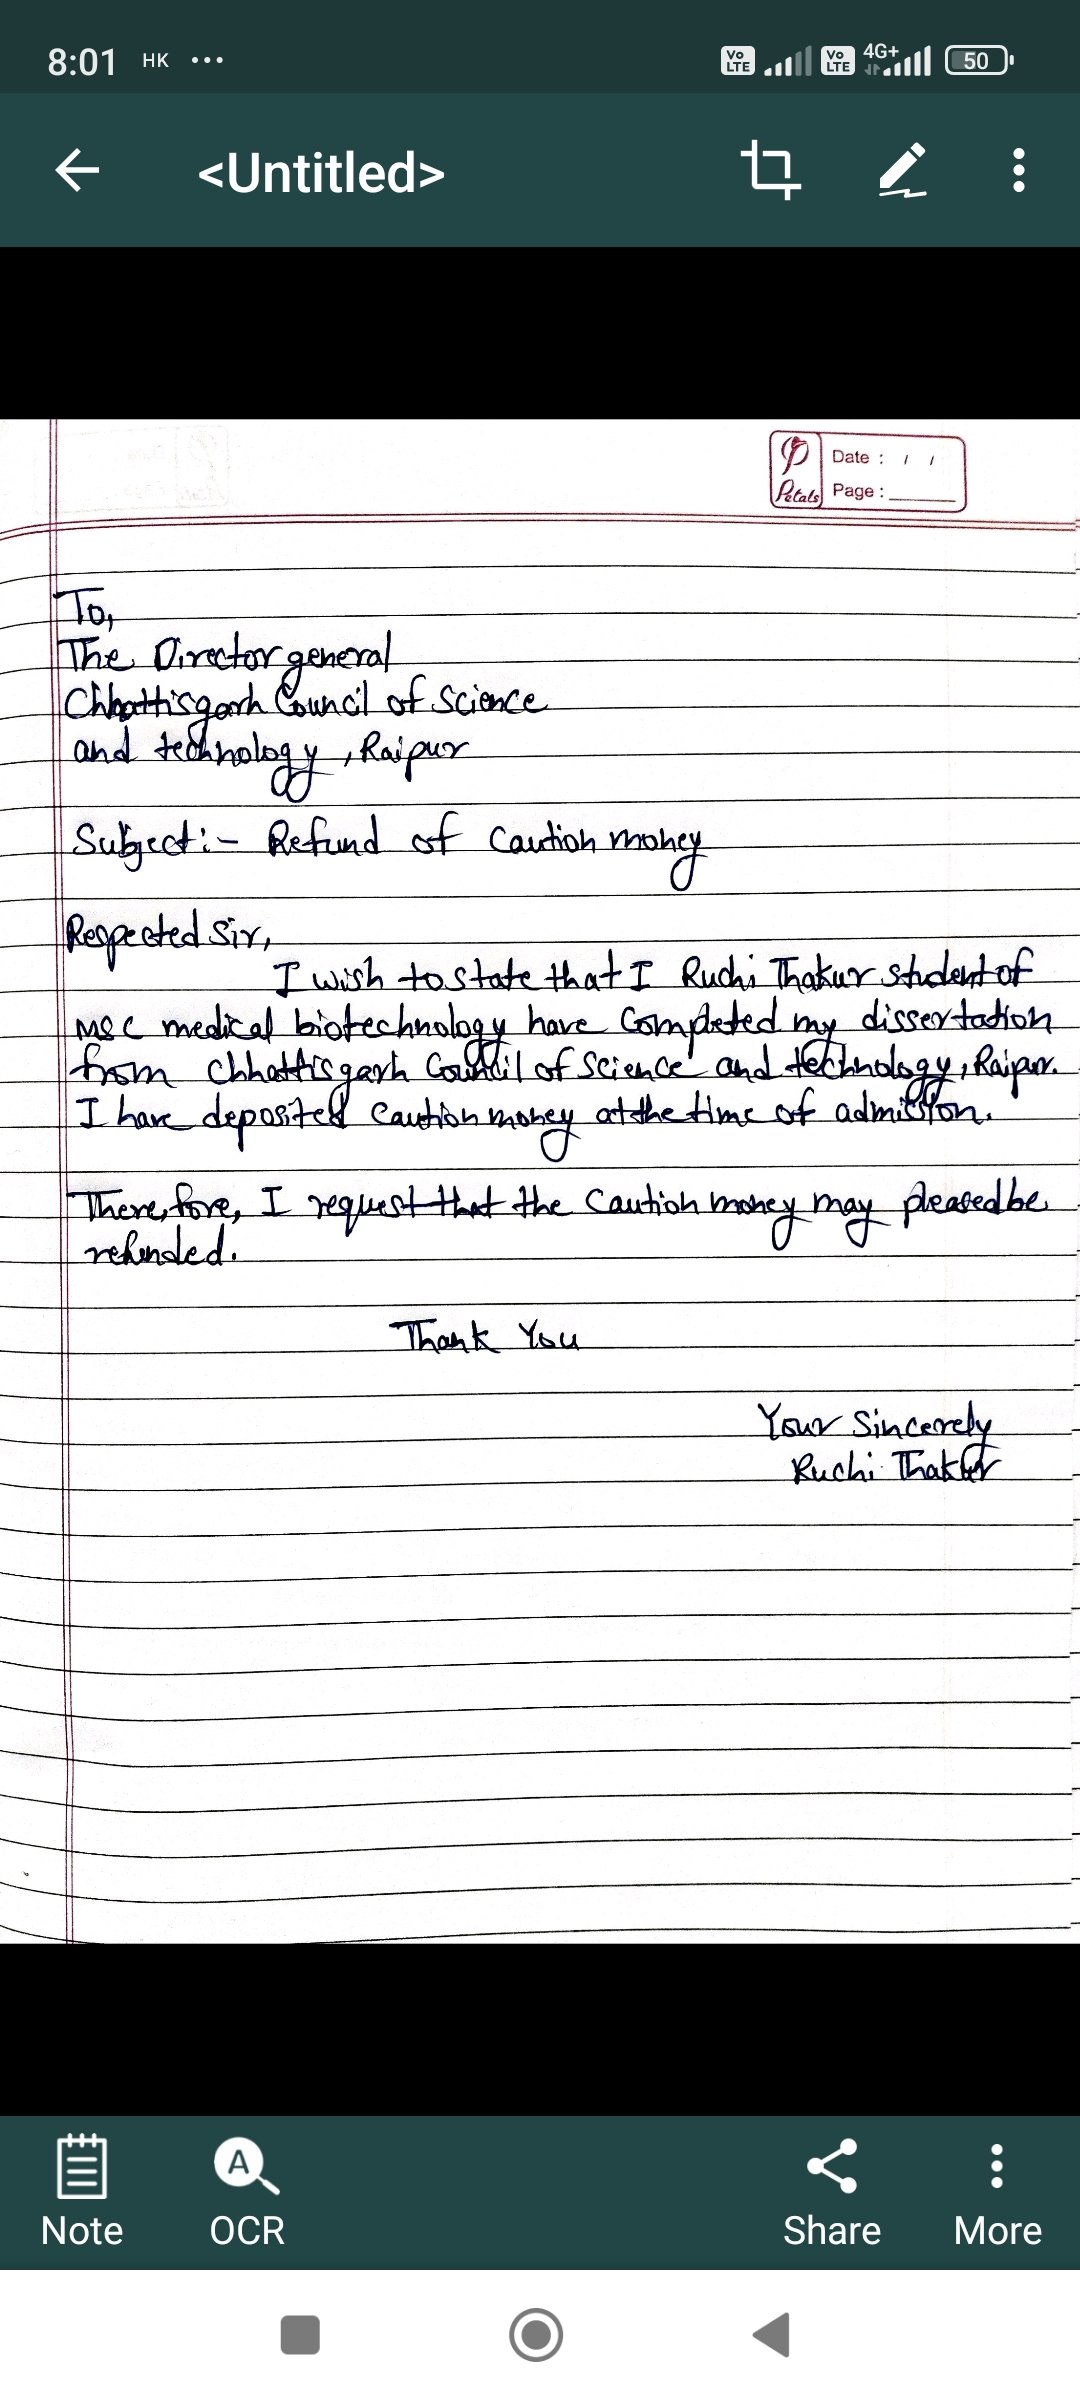 8:01 HK ...
Vo LTE Vo LTE 4G+ 50
<Untitled>
Petals
Date : / /
Page :
To,
The Director general
Chhattisgarh Council of Science
and technology, Raipur
Subject:- Refund of Caution money
Respected Sir,
I wish to state that I Ruchi Thakur student of
MSC medical biotechnology have Completed my dissertation
from Chhattisgarh Council of Science and technology, Raipur.
I have deposited Caution money at the time of admission.
Therefore, I request that the Caution money may pleased be
refunded.
Thank You
Your Sincerely
Ruchi Thakur
Note
OCR
Share
More